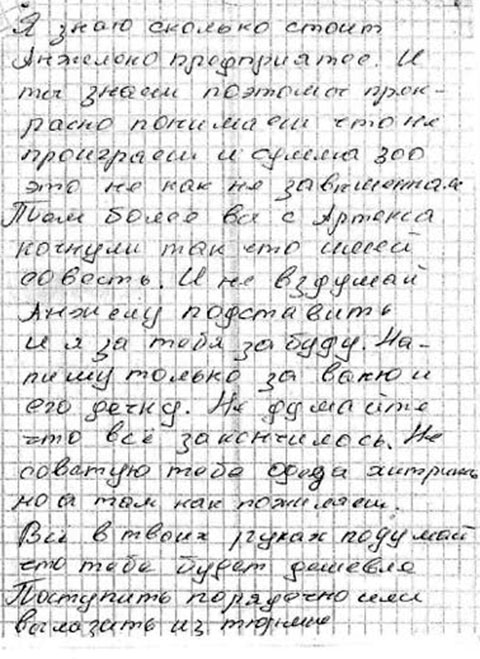 Я знаю сколько стоит
Анжелоко предприятое. И
ты знаеш поэтомы прек-
расно понимаеш что не
проиграеш и сумма 300
это не как не завышенная
Тем более вы с Артекса
качнули так что имей
совесть. И не вздумай
Анжелу подставить
и я за тебя забуду. На-
пишу только за ваню и
его дочку. Не думайте
что всё закончилось. Не
советую тебе хитрить
но а там как пожилаеш.
Всё в твоих руках подумай
что тебе будет дешевле
Поступить порядочно или
вылазить из тюрмы